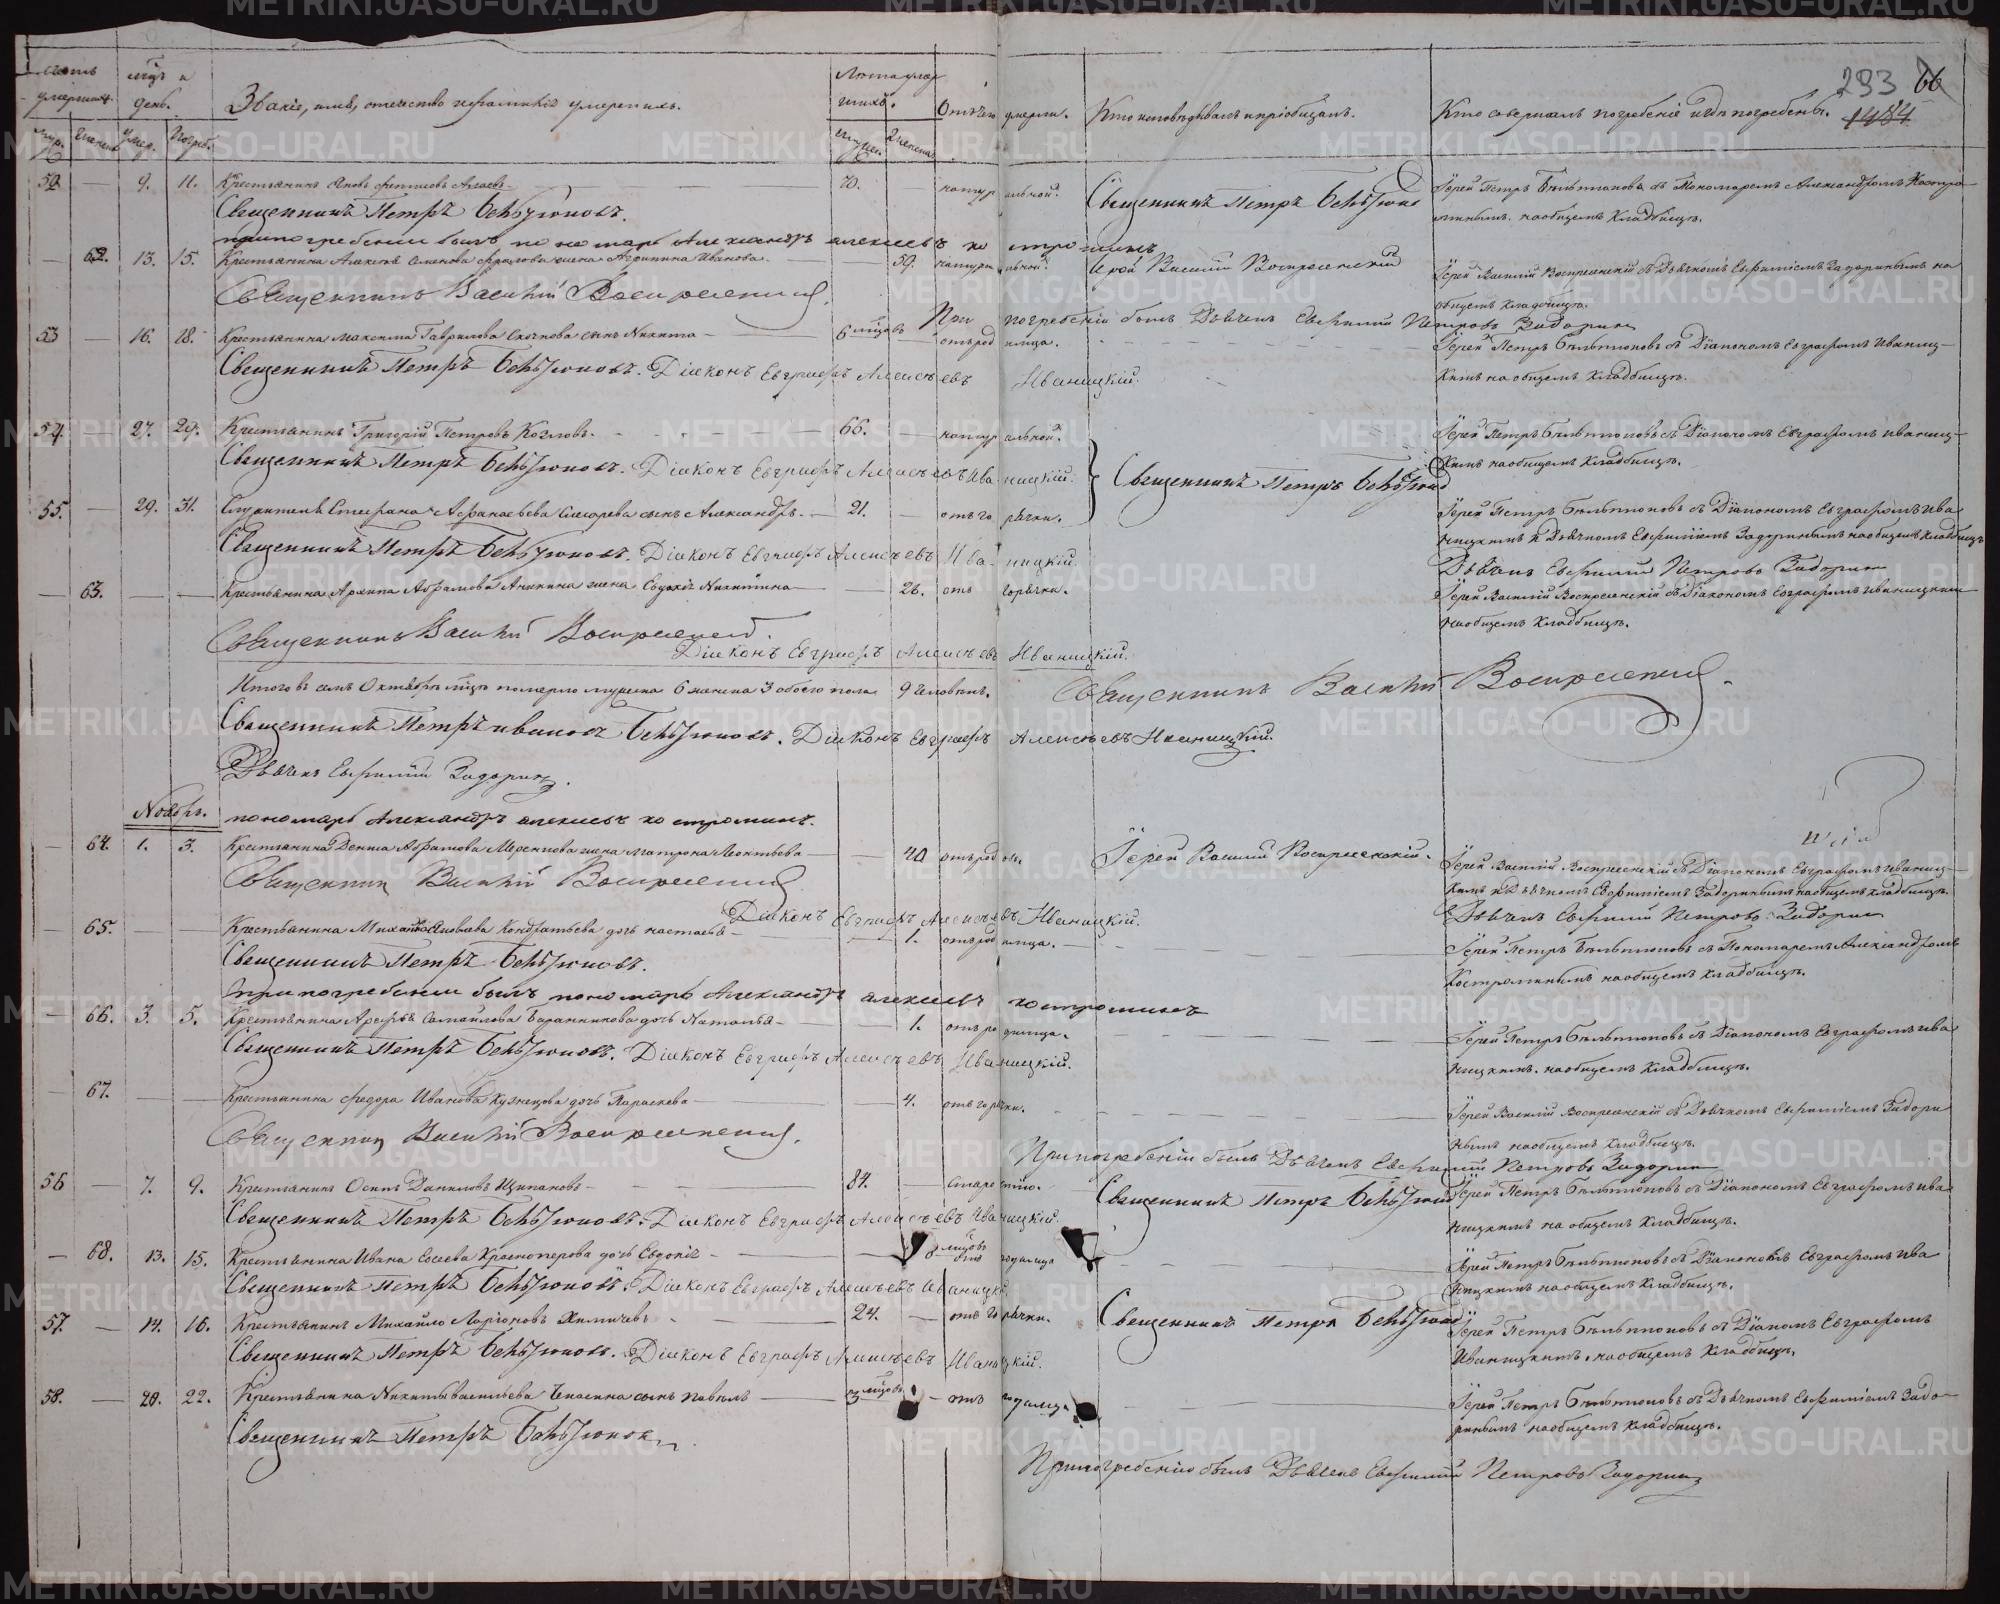 293 66
1484
Счетъ умершихъ. Мѣсяцъ и день. Званіе, имя, отчество и фамилія умершихъ. Лѣта умершихъ. Отъ чего умерли. Кто исповѣдывалъ и пріобщалъ. Кто совершалъ погребеніе и гдѣ погребены.
Муж. Женск. Умер. Погреб. Мужск. Женска.
52. — 9. 11. Крестьянинъ Яковъ 70. натуральной. Священникъ Петръ Бѣльтюков Іерей Петръ Бѣльтюковъ съ Пономаремъ Александромъ Костро-
Священникъ Петръ Бѣльтюковъ. минымъ на общемъ кладбищѣ.
При погребении былъ пономарь Александръ алексиевъ костроминъ
— 62. 13. 15. Крестьянина Алексѣя Семенова жена Агрипина Иванова. — 59. натуральной. Иерей Василий Воскресенский Іерей Василій Воскресенскій съ Дьячкомъ Евфиміемъ Задоринымъ на
Священникъ Василій Воскресенскій. общемъ кладбищѣ.
При погребеніи былъ Дьячекъ Евфимий Петровъ Задоринъ
53 — 16. 18. Крестьянина Максима Гаврилова сынъ Никита — 6 мѣсцовъ отъ родимца. Іерей Петръ Бѣльтюковъ съ Діакономъ Евграфомъ Иваниц-
Священникъ Петръ Бѣльтюковъ. Діаконъ Евграфъ Алексѣевъ Иваницкій. кимъ на общемъ кладбищѣ.
54. — 27. 29. Крестьянинъ Григорій Петровъ Козловъ. 66. — натуральной. Іерей Петръ Бѣльтюковъ съ Діакономъ Евграфомъ Иваниц-
Священникъ Петръ Бѣльтюковъ. Діаконъ Евграфъ Алексѣевъ Иваницкій. Священникъ Петръ Бѣльтюков кимъ на общемъ кладбищѣ.
55. — 29. 31. Служителя Стефана Афанасьева сынъ Александръ. — 21. — отъ горячки. Іерей Петръ Бѣльтюковъ съ Діакономъ Евграфомъ Ива-
Священникъ Петръ Бѣльтюковъ. Діаконъ Евграфъ Алексѣевъ Иваницкій. ницкимъ и Дьячкомъ Евфиміемъ Задоринымъ на общемъ кладбищѣ
Дьячекъ Евфимий Петровъ Задорин
— 63. — — Крестьянина Архипа Абрамова Аникина жена Евдокія Никитина — 26. отъ горячки. Іерей Василій Воскресенскій съ Діакономъ Евграфомъ Иваницкимъ
Священникъ Василій Воскресенскій. на общемъ кладбищѣ.
Діаконъ Евграфъ Алексѣевъ Иваницкій.
Итого въ семъ Октябрѣ мѣсцѣ померло мужеска 6 женска 3 обоего пола 9 человѣкъ. Священникъ Василій Воскресенскій.
Священникъ Петръ ивановъ Бѣльтюковъ. Діаконъ Евграфъ Алексѣевъ Иваницкій.
Дьячекъ Евфимій Задоринъ.
Ноябрь. пономарь Александръ алексиевъ костроминъ.
— 64. 1. 3. Крестьянина Дениса жена Матрона Леонтьева — 40 отъ родов. Іерей Василій Воскресенскій. Іерей Василій Воскресенскій съ Діакономъ Евграфомъ Иваниц-
Священникъ Василій Воскресенскій кимъ и Дьячкомъ Евфиміемъ Задоринымъ на общемъ кладбищѣ.
Діаконъ Евграфъ Алексѣевъ Иваницкій. Дьячекъ Евфимий Петровъ Задорин
— 65. — — Крестьянина Михайла Яковлева Кондратьева дочь настасья — 1. отъ родимца. Іерей Петръ Бѣльтюковъ съ Пономаремъ Александромъ
Священникъ Петръ Бѣльтюковъ. Костроминымъ на общемъ кладбищѣ.
При погребении былъ пономарь Александръ алексиевъ костроминъ
— 66. 3. 5. Крестьянина Самойлова Баранникова дочь Наталья — 1. отъ родимца. Іерей Петръ Бѣльтюковъ съ Діакономъ Евграфомъ Ива-
Священникъ Петръ Бѣльтюковъ. Діаконъ Евграфъ Алексѣевъ Иваницкій. ницкимъ на общемъ кладбищѣ.
— 67. — — Крестьянина Федора Иванова Кузнецова дочь Параскева — 4. отъ горячки. Іерей Василій Воскресенскій съ Дьячкомъ Евфиміемъ Задори-
Священникъ Василій Воскресенскій. нымъ на общемъ кладбищѣ.
При погребеніи былъ Дьячекъ Евфимий Петровъ Задорин
56 — 7. 9. Крестьянинъ Осипъ Даниловъ Щипановъ 84. — старостію. Священникъ Петръ Бѣльтюков Іерей Петръ Бѣльтюковъ съ Діакономъ Евграфомъ Ива-
Священникъ Петръ Бѣльтюковъ. Діаконъ Евграфъ Алексѣевъ Иваницкій. ницкимъ на общемъ кладбищѣ.
— 68. 13. 15. Крестьянина Ивана Евсеева Красноперова дочь Евдокія — 8 мѣсцовъ отъ родимца Іерей Петръ Бѣльтюковъ съ Діакономъ Евграфомъ Ива-
Священникъ Петръ Бѣльтюковъ. Діаконъ Евграфъ Алексѣевъ Иваницкій. ницкимъ на общемъ кладбищѣ.
57. — 14. 16. Крестьянинъ Михайло Ларіоновъ Химичевъ. 24. — отъ горячки. Священникъ Петръ Бѣльтюков Іерей Петръ Бѣльтюковъ съ Діакономъ Евграфомъ
Священникъ Петръ Бѣльтюковъ. Діаконъ Евграфъ Алексѣевъ Иваницкій. Иваницкимъ на общемъ кладбищѣ.
58. — 20. 22. Крестьянина Никиты Васильева сынъ Павелъ — 3 мѣсцовъ — отъ родимца Іерей Петръ Бѣльтюковъ съ Дьячкомъ Евфиміемъ Задо-
Священникъ Петръ Бѣльтюков. ринымъ на общемъ кладбищѣ.
При погребеніи былъ Дьячекъ Евфимий Петровъ Задоринъ